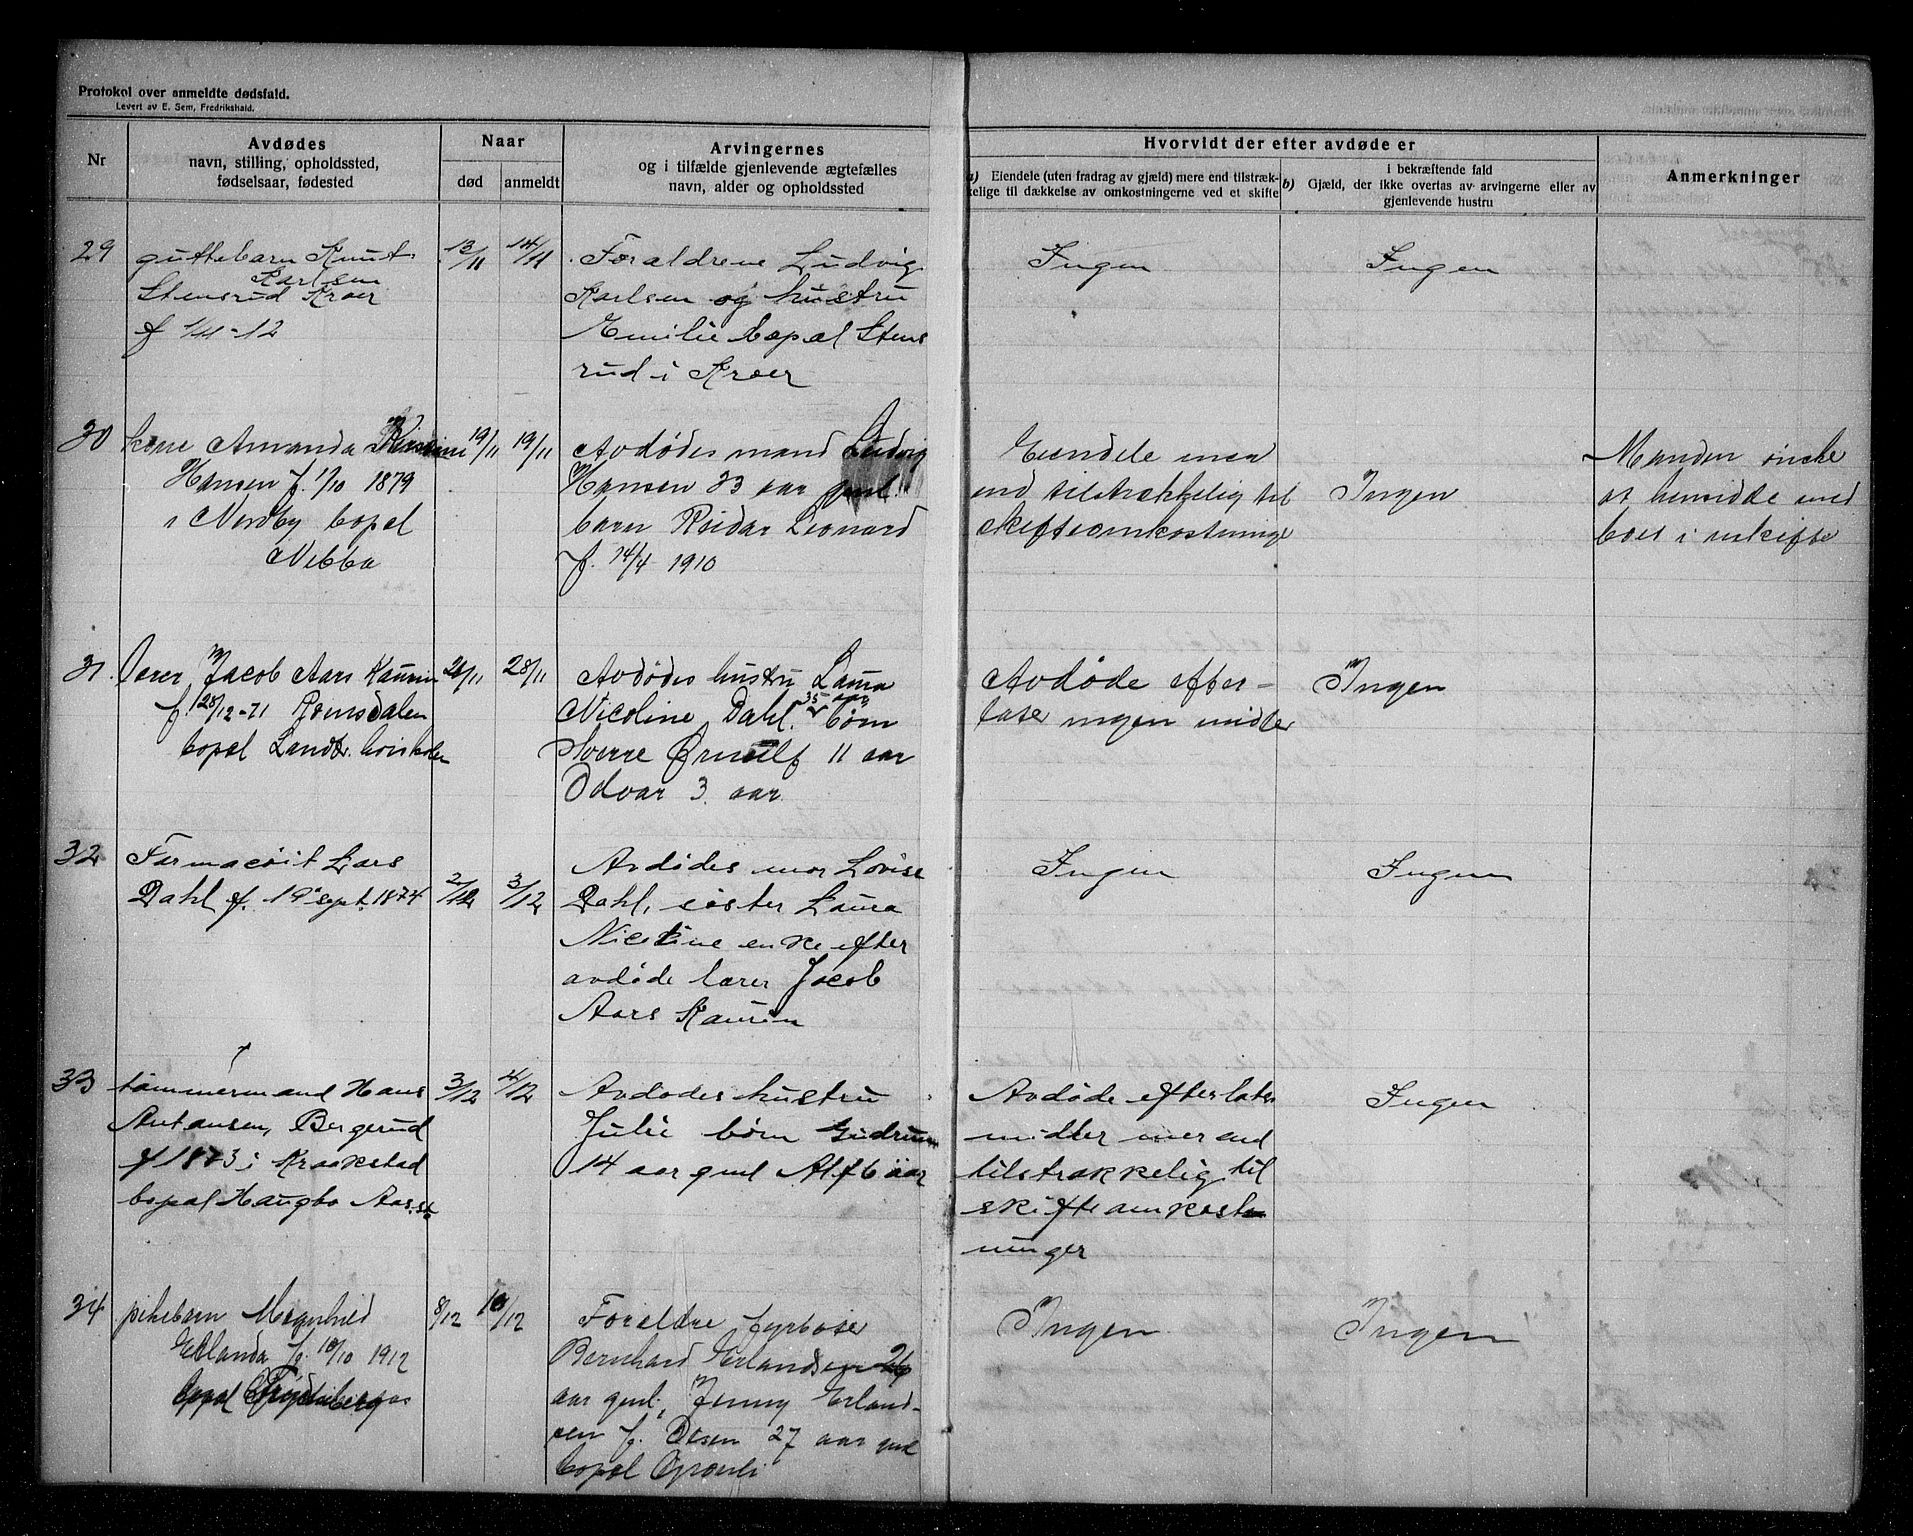 Protokol over anmeldte dødsfald.
Levert av E. Sem, Fredrikshald.
Nr
Avdødes
navn, stilling, opholdssted,
fødselsaar, fødested
Naar
død
anmeldt
Arvingernes
og i tilfælde gjenlevende ægtefælles
navn, alder og opholdssted
Hvorvidt der efter avdøde er
a) Eiendele (uten fradrag av gjæld) mere end tilstræk-
kelige til dækkelse av omkostningerne ved et skifte
i bekræftende fald
b) Gjæld, der ikke overtas av arvingerne eller av
gjenlevende hustru
Anmerkninger
29
guttebarn Knut
Karlsen
Stensrud Kroer
f 1/11-12
13/11
14/11
Forældrene Ludvig
Karlsen og hustru
Emilie bopæl Stens
rud i Kroer
Ingen
Ingen
30
kone Amanda
Hansen f. 1/10 1879
i Nordby bopel
Nebba
19/11
19/11
Avdødes mand Ludvig
Hansen 33 aar gml.
barn Reidar Leonard
f. 14/4 1910
Eiendele mer
end tilstrækkelig til
skifteomkostninge
Ingen
Manden ønske
at hensidde med
boet i uskifte
31.
Lærer Jacob Aars Kaurin
f. 28/12-71 Romsdalen
bopæl Landbr. høiskolen
28/11
Avdødes hustru Laura
Nicoline Dahl. 35 aar børn
Sverre Ørnulf 11 aar
Odvar 3 aar
Avdøde efter-
later ingen midler
Ingen
32
Farmaceut Lars
Dahl f. 19 sept. 1874
2/12
3/12
Avdødes mor Lovise
Dahl, søster Laura
Nicoline enke efter
avdøde lærer Jacob
Aars Kaurin
Ingen
Ingen
33
tømmermand Hans
Antonsen, Bergerud
f 1873 i Kraakstad
bopæl Haugbo Aas.st
3/12
4/12
Avdødes hustru
Julie børn Gudrun
14 aar gml Alf 6 aar
Avdøde efterlater
midler mer end
tilstrækkelig til
skifteomkost-
ninger
Ingen
34
pikebarn Magnhild
Erlanda f. 10/10 1912
bopæl
8/12
10/12
Forældre fyrbøter
Bernhard Erlandsen 26
aar gml, Jenny Erland-
sen f. Olsen 27 aar gml
bopæl
Ingen
Ingen